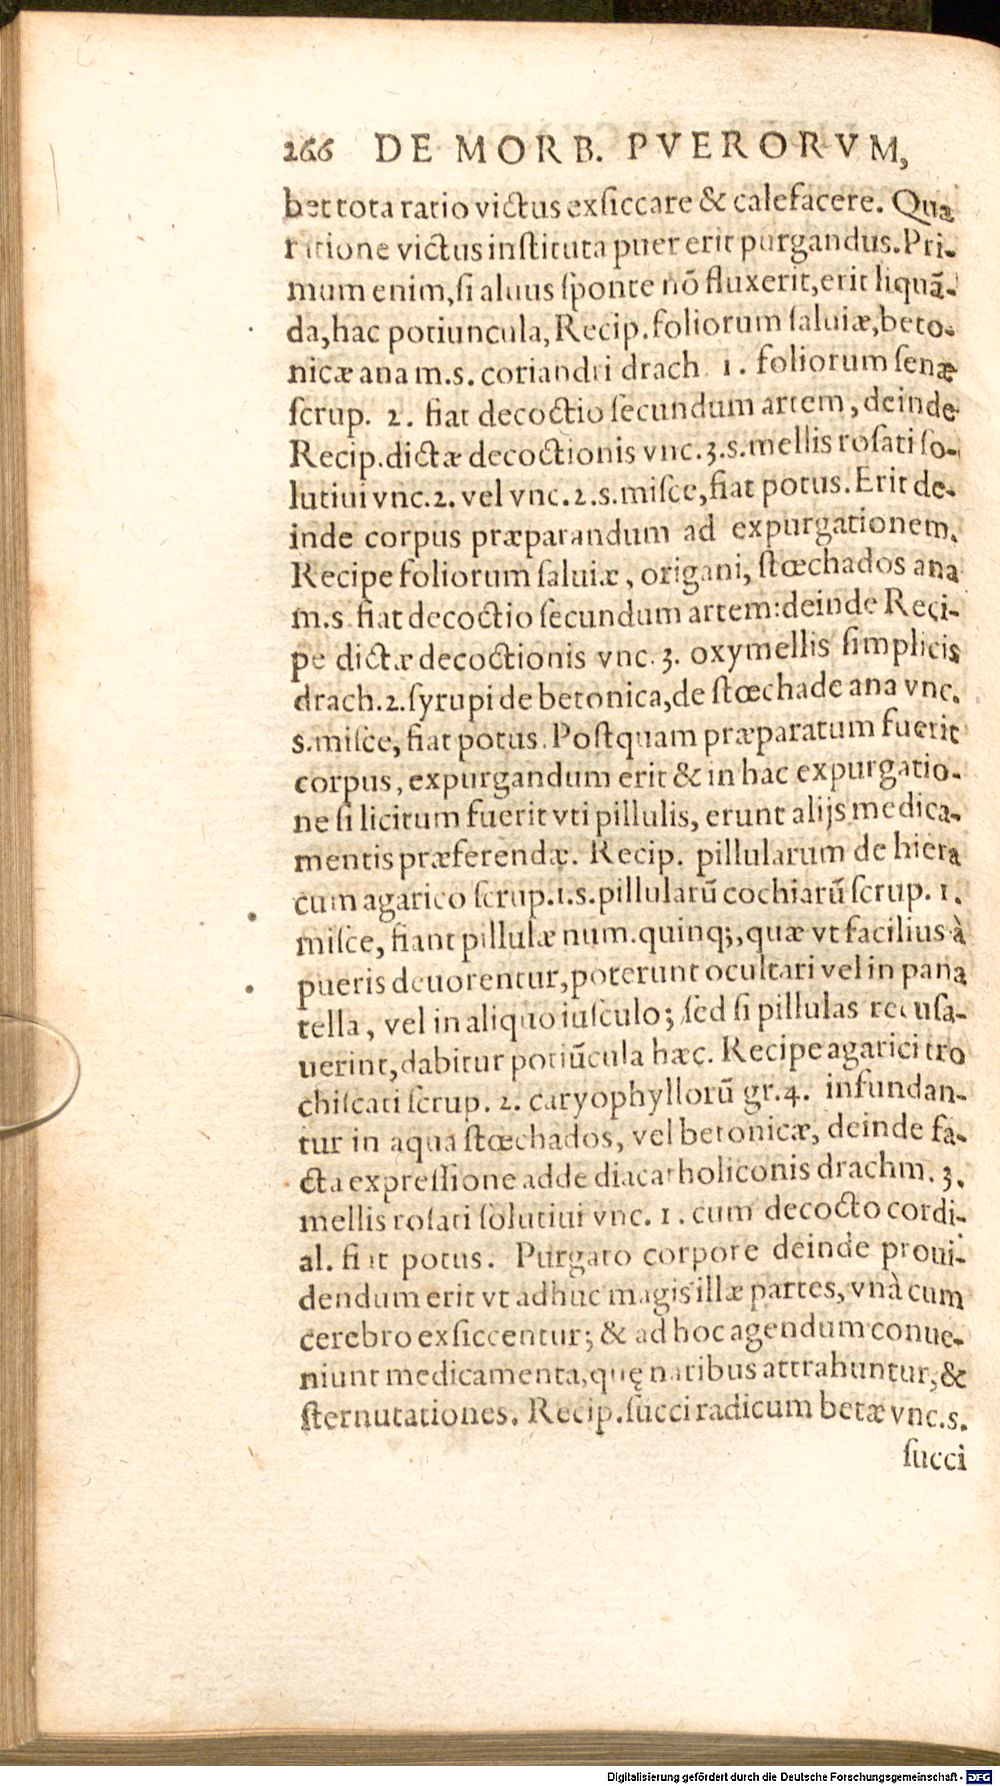 266 DE MORB. PVERORVM,
bet tota ratio victus exſiccare & calefacere. Qua
ratione victus inſtituta puer erit purgandus. Pri-
mum enim, ſi aluus ſponte nō fluxerit, erit liquā-
da, hac potiuncula, Recip. foliorum ſaluiæ, beto-
nicæ ana m.s. coriandri drach. 1. foliorum ſenæ
ſcrup. 2. fiat decoctio ſecundum artem, deinde
Recip. dictæ decoctionis vnc. 3.s. mellis roſati ſo-
lutiui vnc. 2. vel vnc. 2.s. miſce, fiat potus. Erit de-
inde corpus præparandum ad expurgationem.
Recipe foliorum ſaluiæ, origani, ſtœchados ana
m.s. fiat decoctio ſecundum artem: deinde Reci-
pe dictæ decoctionis vnc. 3. oxymellis ſimplicis
drach. 2. ſyrupi de betonica, de ſtœchade ana vnc.
s. miſce, fiat potus. Poſtquam præparatum fuerit
corpus, expurgandum erit & in hac expurgatio-
ne ſi licitum fuerit vti pillulis, erunt alijs medica-
mentis præferendæ. Recip. pillularum de hiera
cum agarico ſcrup. 1.s. pillularū cochiarū ſcrup. 1.
miſce, fiant pillulæ num. quinq;, quæ vt facilius à
pueris deuorentur, poterunt ocultari vel in pana
tella, vel in aliquo iuſculo; ſed ſi pillulas recuſa-
uerint, dabitur potiūcula hæc. Recipe agarici tro
chiſcati ſcrup. 2. caryophyllorū gr. 4. infundan-
tur in aqua ſtœchados, vel betonicæ, deinde fa-
cta expreſſione adde diacatholiconis drachm. 3.
mellis roſati ſolutiui vnc. 1. cum decocto cordi-
al. fiat potus. Purgato corpore deinde proui-
dendum erit vt adhuc magis illæ partes, vnà cum
cerebro exſiccentur; & ad hoc agendum conue-
niunt medicamenta, quę naribus attrahuntur, &
ſternutationes. Recip. ſucci radicum betæ vnc. s.
ſucci
Digitalisierung gefördert durch die Deutsche Forschungsgemeinschaft - DFG